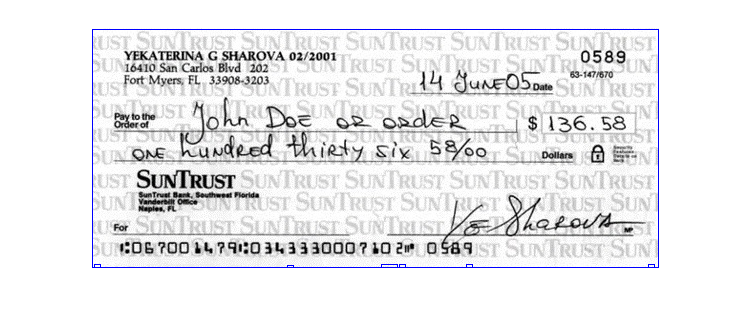 YEKATERINA G SHAROVA 02/2001
0589
16410 San Carlos Blvd 202
63-147/670
Fort Myers, FL 33908-3203
14 JUNE 05 Date
Pay to the
Order of
John DOE OR ORDER
$ 136.58
ONE hundred thirty six 58/00
Dollars
SUNTRUST
SunTrust Bank, Southwest Florida
Vanderbilt Office
Naples, FL
For
YE Sharova
MP
⑆067001479⑆0343330007102⑈ 0589